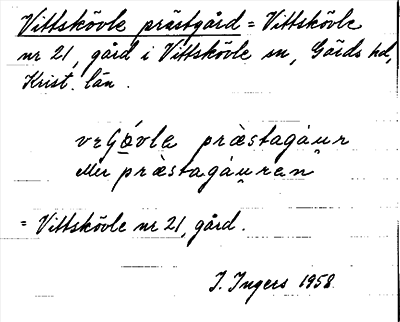 Vittskövle prästgård = Vittskövle
nr 21, gård i Vittskövle sn, Gärds hd,
Krist. län.
præstagáu̯r
præ̀stagáu̯ran
= Vittskövle nr 21, gård.
I. Ingers 1958.